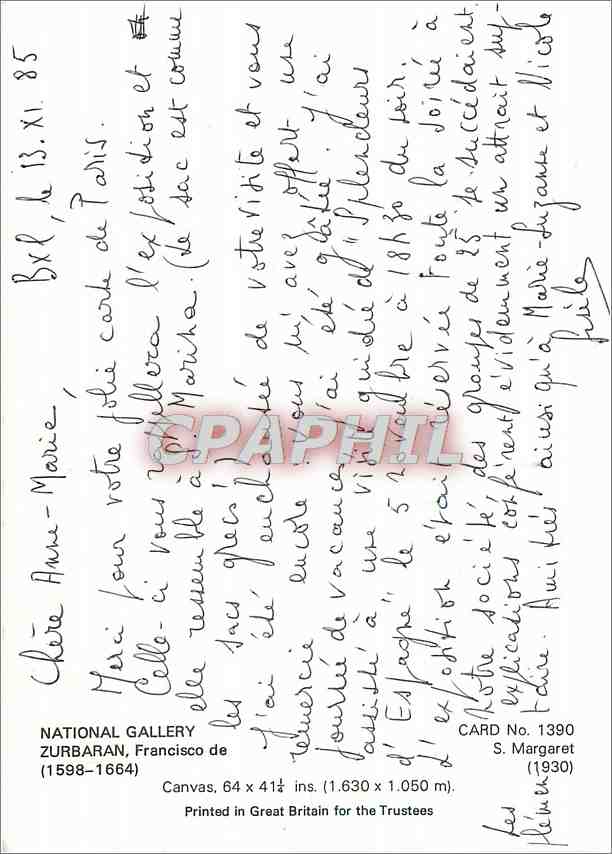 Bxl, le 13.XI.85
Chère Anne-Marie,
Merci pour votre jolie carte de Paris.
Celle-ci vous rappellera l'exposition et
elle ressemble à Marina. (Le sac est comme
les sacs grecs)
J'ai été enchantée de votre visite et vous
remercie encore. Vous m'avez offert une
journée de vacances, j'ai été gâtée. J'ai
assisté à une visite guidée de "Splendeurs
d'Espagne" le 5 novembre à 18h30 du soir.
L'exposition était réservée toute la soirée à
notre société, des groupes de 25 se succédaient.
Les explications confèrent évidemment un attrait sup-
plémentaire. Amitiés ainsi qu'à Marie-Suzanne et Nicole
CPAPHIL
NATIONAL GALLERY
ZURBARAN, Francisco de
(1598–1664)
CARD No. 1390
S. Margaret
(1930)
Canvas, 64 x 41¼ ins. (1.630 x 1.050 m).
Printed in Great Britain for the Trustees